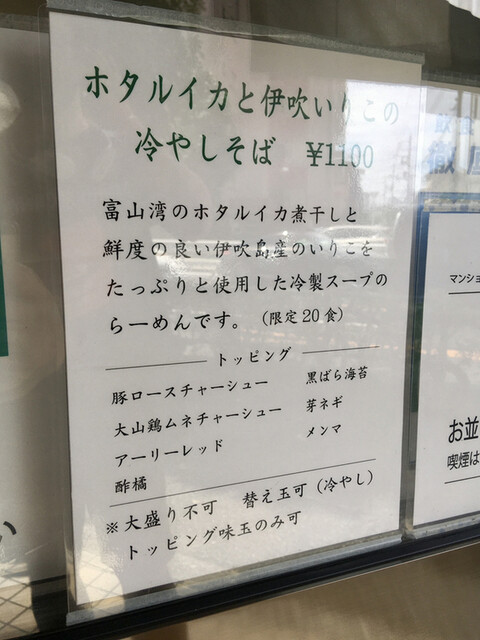 ホタルイカと伊吹いりこの
冷やしそば ¥1100
富山湾のホタルイカ煮干しと
鮮度の良い伊吹島産のいりこを
たっぷりと使用した冷製スープの
らーめんです。（限定20食）
トッピング
豚ロースチャーシュー 黒ばら海苔
大山鶏ムネチャーシュー 芽ネギ
アーリーレッド メンマ
酢橘
※大盛り不可 替え玉可（冷やし）
トッピング味玉のみ可
マンショ
お並
喫煙は